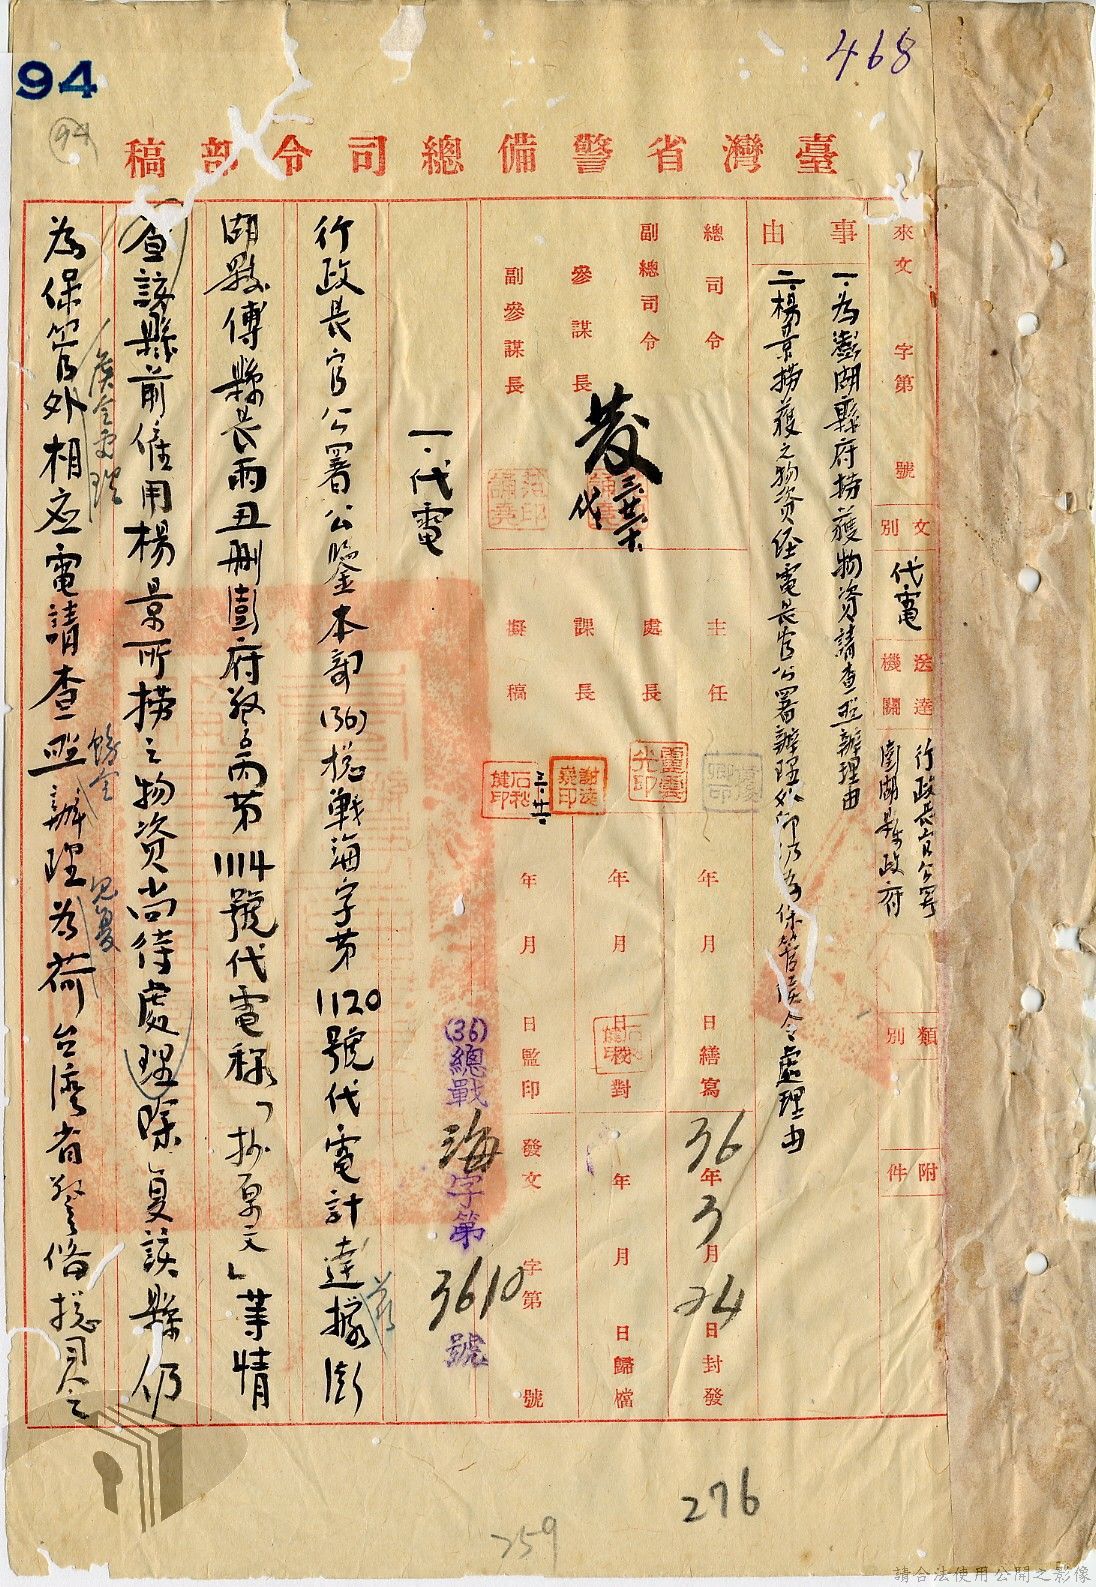 468
94
94
臺灣省警備總司令部稿
來文 字第 號
文別 代電
送達機關 行政長官公署
澎湖縣政府
類別
附件
事由
一、為澎湖縣府持獲物資請查照辦理由
二、楊景撈獲之物資經電長官公署辦理外仰仍為保管候令處理由
總司令
副總司令
參謀長
副參謀長
發
代
主任
處長
課長
擬稿
三、廿
年 月 日繕寫
年 月 日校對
年 月 日監印
36年3月24日封發
年 月 日歸檔
發文 字第 號
(36)總戰海字第3610號
一、代電
行政長官公署公鑒本部(36)總戰海字第1120號代電計達據澎
湖縣傅縣長雨丑刪澎府警丙第1114號代電稱「抄原文」等情
查該縣前僱用楊景所撈之物資尚待處理除復該縣仍
候令處理
為保管外相應電請查照辦理為荷台灣省警備總司令
飭令
見復
276
259
請合法使用公開之影像